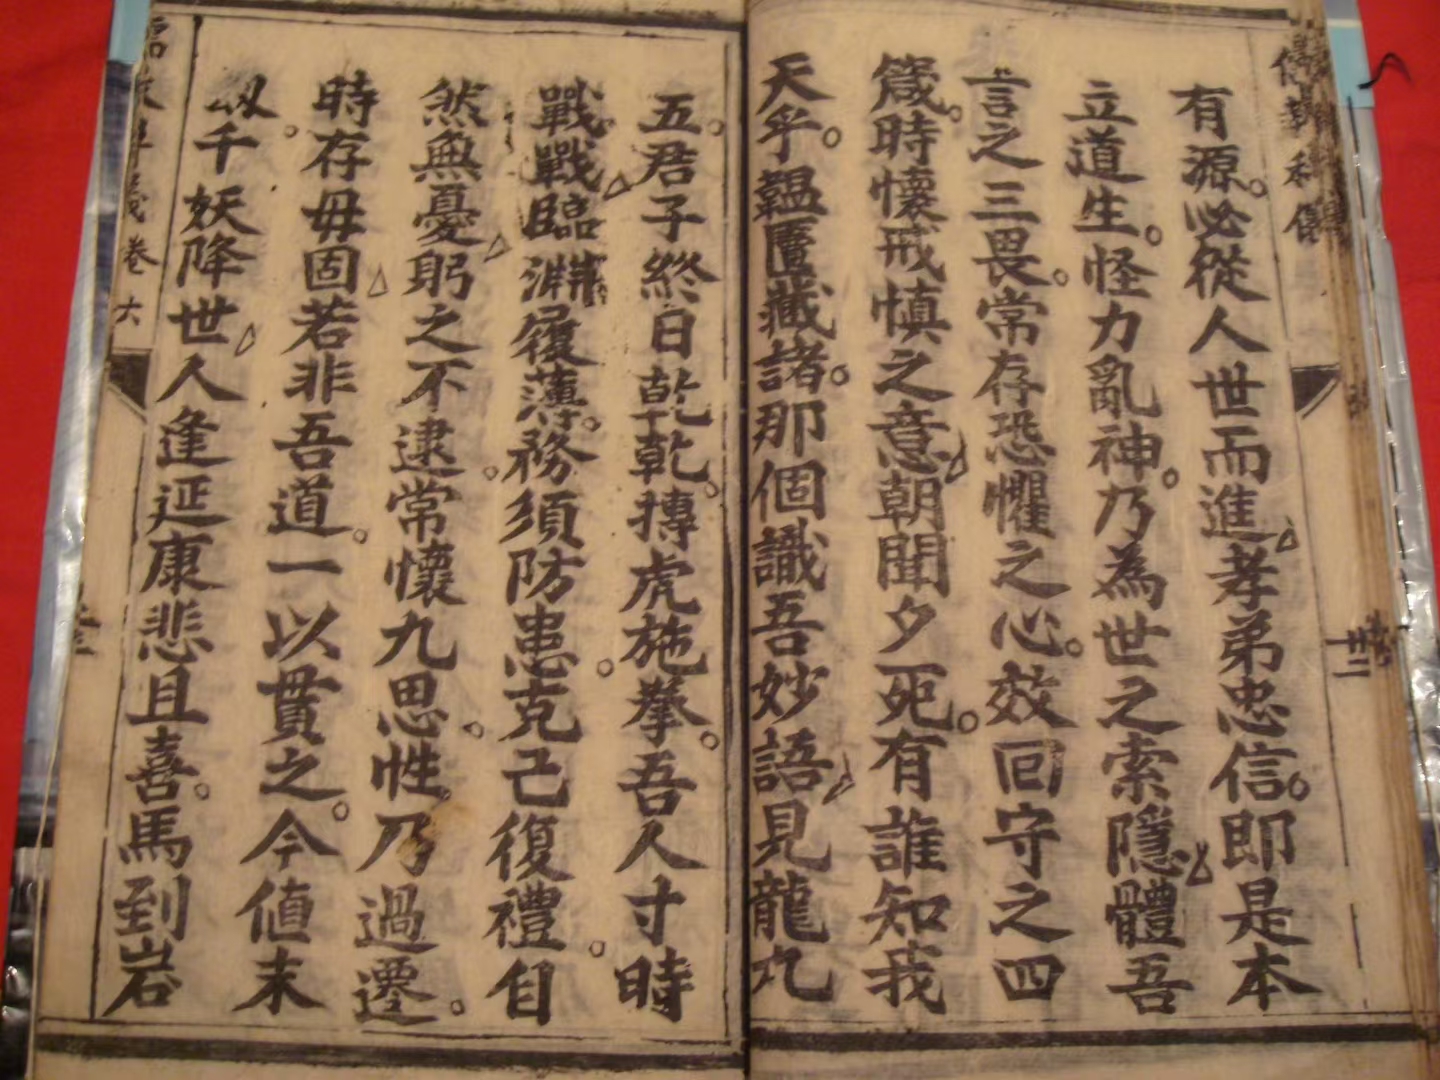 有源必從人世而進孝弟忠信即是本
立道生怪力亂神乃為世之索隱體吾
言之三畏常存恐懼之心效回守之四
箴時懷戒慎之意朝聞夕死有誰知我
天乎韞匵藏諸那個識吾妙語見龍九
五君子終日乾乾摶虎施拳吾人寸時
戰戰臨淵履薄務須防患克己復禮自
然無憂躬之不逮常懷九思性乃過遷
時存毋固若非吾道一以貫之今值末
刼千妖降世人逢延康悲且喜馬到岩
卷六
廿二